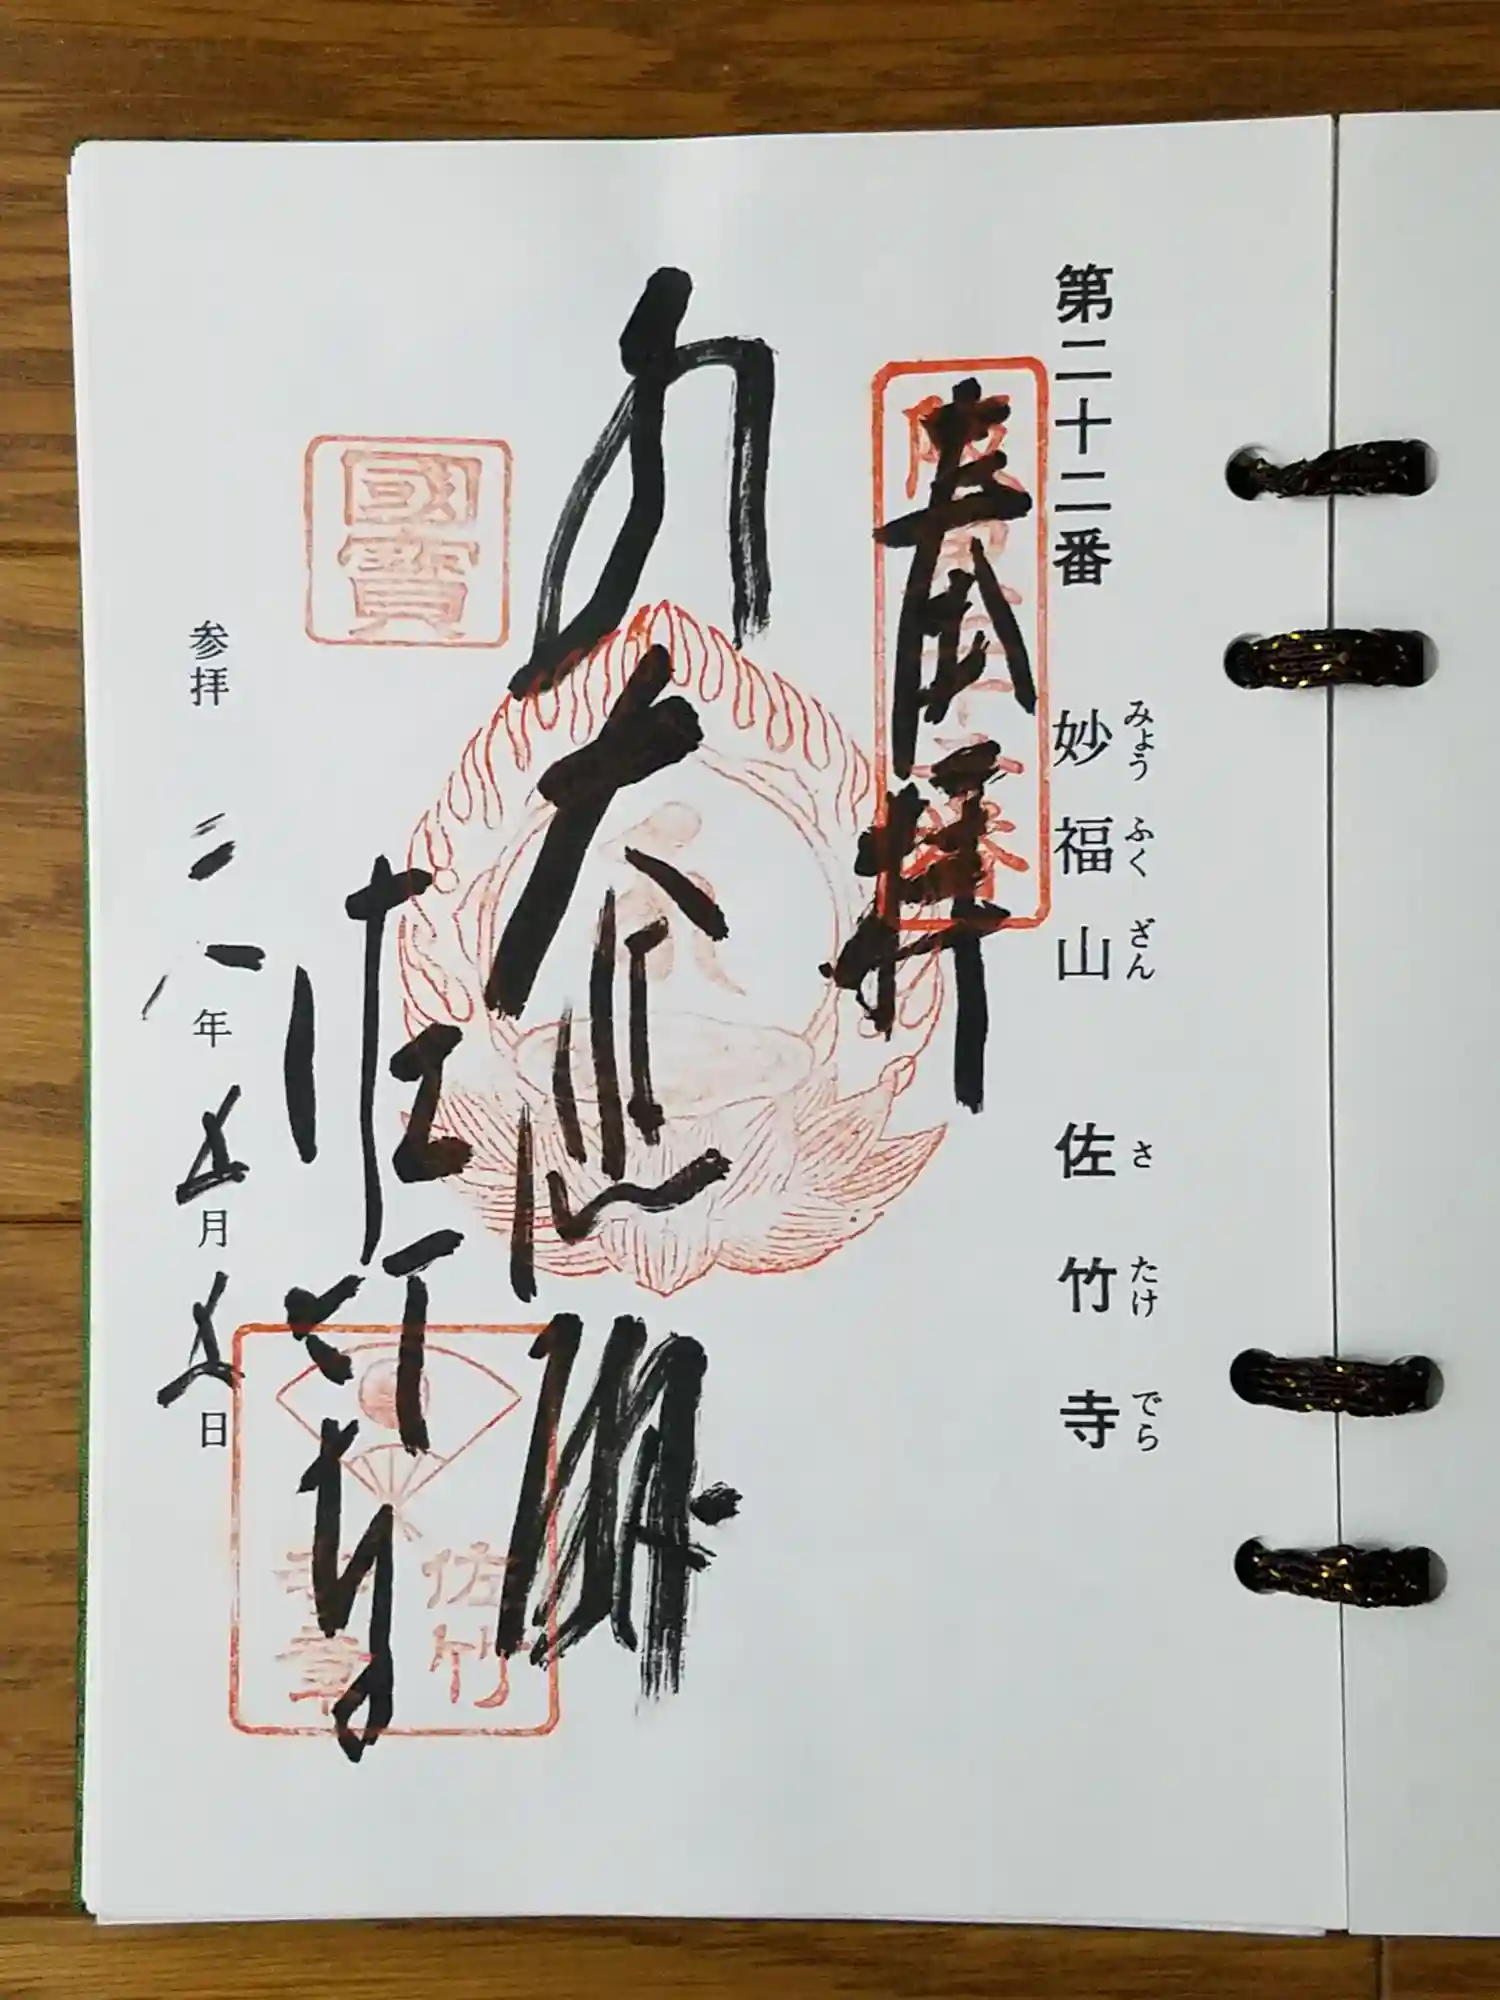 第二十二番 妙福山 佐竹寺
みょう ふく ざん さ たけ でら
奉拝
大悲殿
國寶
佐竹寺
佐竹
寺章
参拝 二八年五月五日